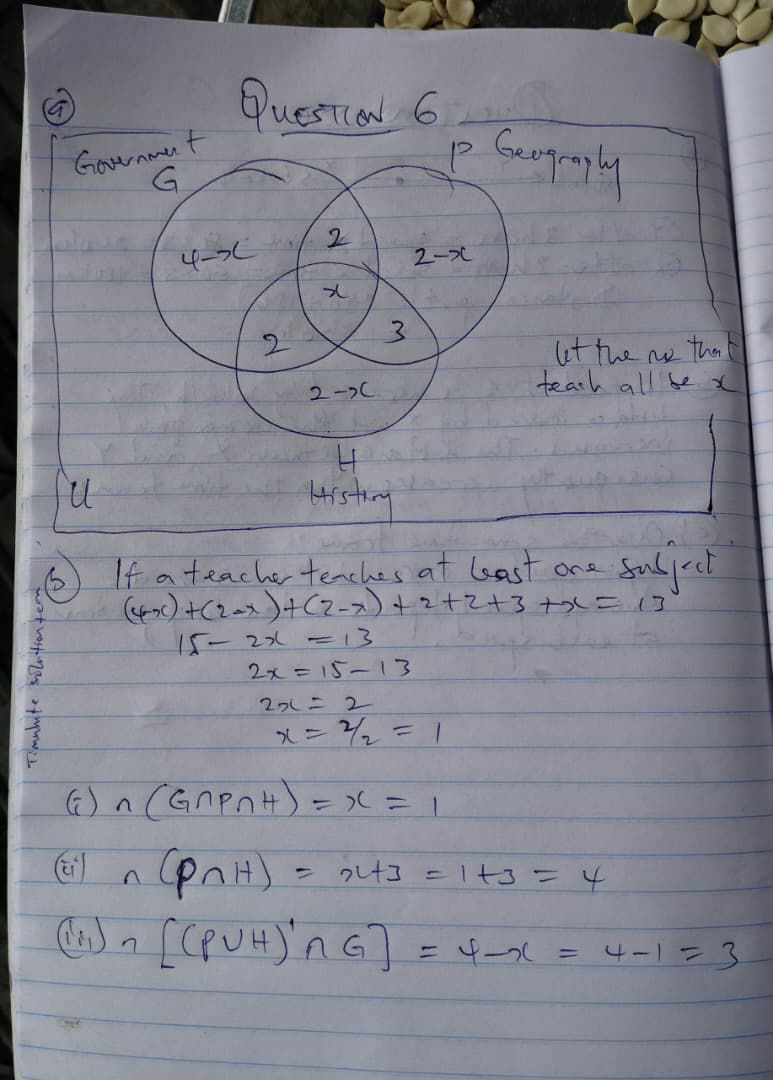 (a) QUESTION 6
Government
G
P Geography
4-x
2
2-x
x
2
3
2-x
let the no that
teach all be x
H
History
U
(b) If a teacher teaches at least one subject
(4-x)+(2-x)+(2-x)+2+2+3+x=13
15-2x=13
2x=15-13
2x=2
x=2/2=1
(i) n(G∩P∩H)=x=1
(ii) n(P∩H)=x+3=1+3=4
(iii) n[(P∪H)'∩G]=4-x=4-1=3